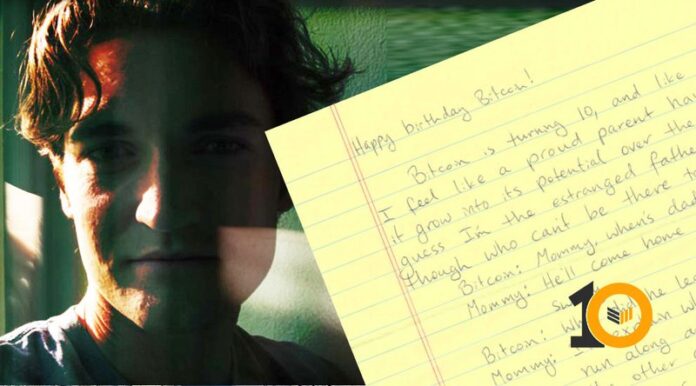 Happy birthday Bitcoin!
Bitcoin is turning 10, and like
I feel like a proud parent
it grow into its potential over the
guess I'm the estranged
though who can't be there
Bitcoin: Mommy, where's
Mommy: He'll come home
Bitcoin:
Mommy:
run along
other
10